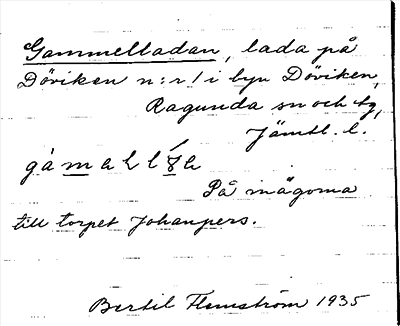 Gammelladan, lada på
Döviken n:r 1 i byn Döviken,
Ragunda sn och tg,
Jämtl. l.
På mågorna
till torpet Johanpers.
Bertil Flemström 1935